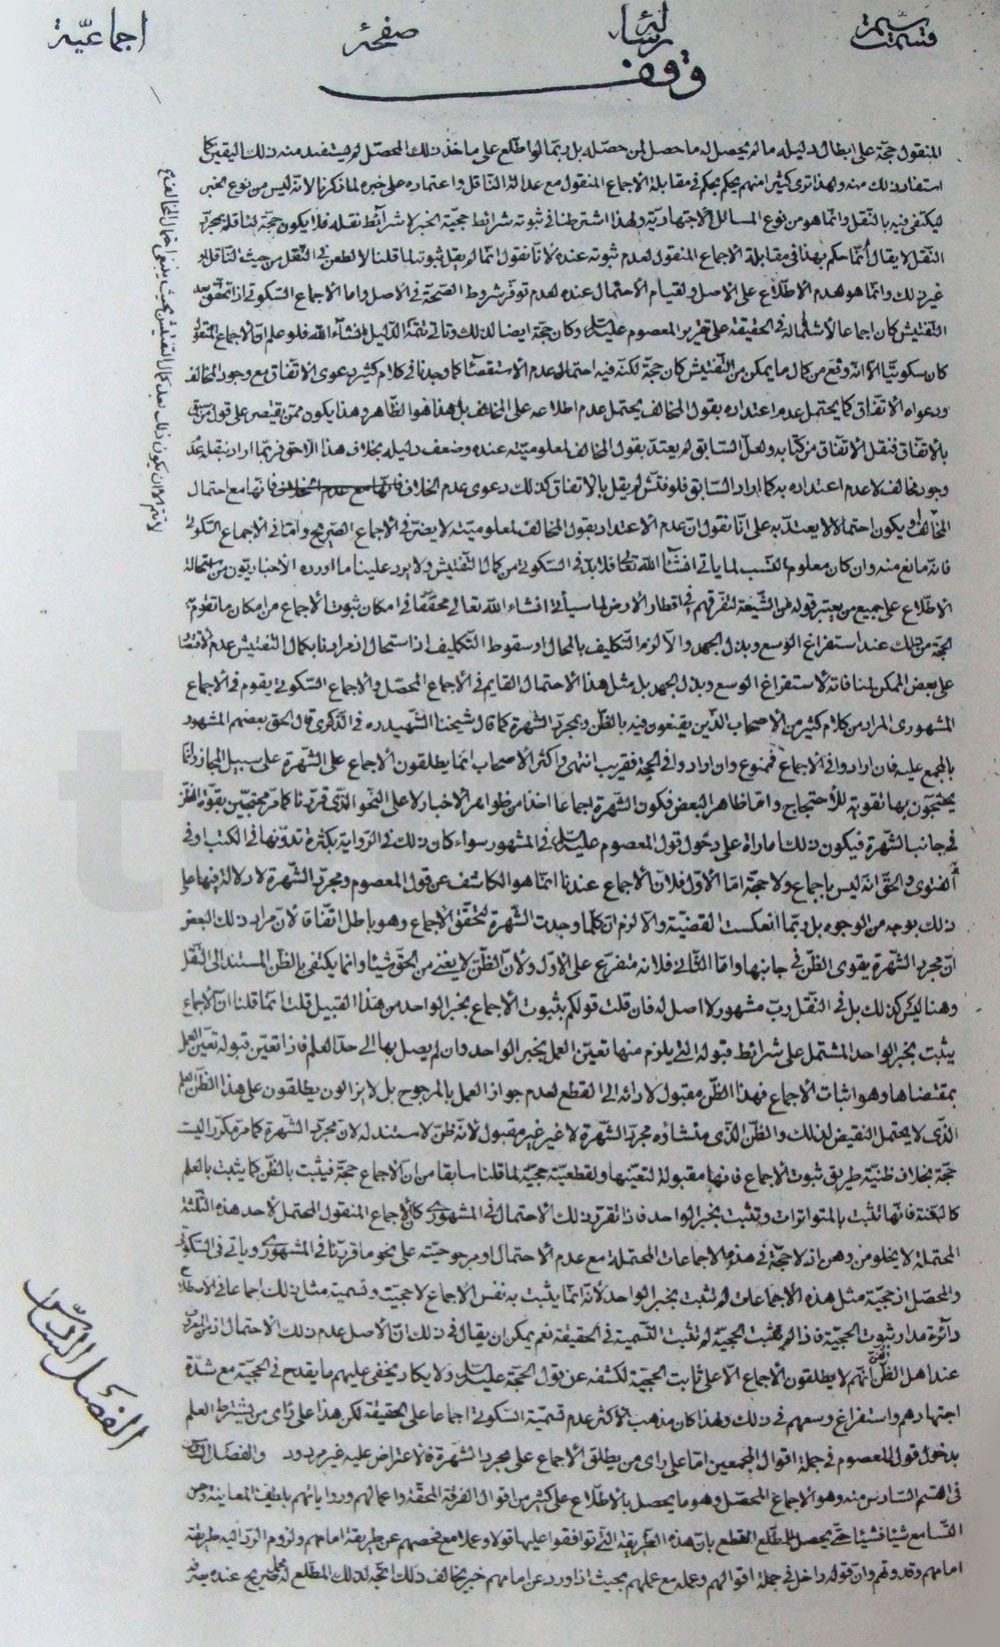 قسمت سيمة رسالة صفحة اجماعية
وقف
المنقول حجة على ابطال دليله ما لم يحصل له ما حصل لمن حصله بل ربما لو اطلع على ماخذ ذلك المحصل لم يستفد منه ذلك اليقين كما
استفاد ذلك منه ولهذا ترى كثيرا منهم يحكم بحكم في مقابلة الاجماع المنقول مع عدالة الناقل واعتماده على خبره لما ذكرنا لانه ليس من نوع الخبر
ليكتفى فيه بالنقل وانما هو من نوع المسائل الاجتهادية ولهذا اشترطنا في ثبوته شرائط حجية الخبر لا شرائط نقله فلا يكون حجة لناقله بمجرد
النقل لا يقال انما حكم بهذا في مقابلة الاجماع المنقول لعدم ثبوته عنده لانا نقول انما لم يقل ثبوته لما قلنا لا لطعن في النقل من حيث الناقل او
غير ذلك وانما هو لعدم الاطلاع على الاصل ولقيام الاحتمال عنده لعدم توفر شروط الصحة في الاصل واما الاجماع السكوتي اذا تحقق بعد
التفتيش كان اجماعا لاشتماله في الحقيقة على تقرير المعصوم عليه السلام وكان حجة ايضا لذلك وتاتي تتمة الدليل انشاء الله فلو علم ان الاجماع المنقول
كان سكوتيا الا انه وقع من كمال ما يمكن من التفتيش كان حجة لكنه فيه احتمال عدم الاستقصاء كما وجدنا في كلام كثير دعوى الاتفاق مع وجود المخالف
ودعواه الاتفاق كما يحتمل عدم اعتداده بقول المخالف يحتمل عدم اطلاعه على المخالف بل هذا هو الظاهر وهذا يكون ممن يقتصر على قول من سبق
بالاتفاق فنقل الاتفاق من كتابه ولعل السابق لم يعتد بقول المخالف لمعلوميته عنده وضعف دليله بخلاف هذا اللاحق فربما اراد بنقله عدم
وجود مخالف لا عدم اعتداده به كما اراد السابق فلو فتش لم يقل بالاتفاق كذلك دعوى عدم الخلاف فانها مع احتمال
المخالف ويكون احتمالا لا يعتد به على انا نقول ان عدم الاعتداد بقول المخالف لمعلوميته لا يضر في الاجماع الصريح واما في الاجماع السكوتي
فانه مانع منه وان كان معلوم النسب لما ياتي انشاء الله تعالى فلا بد في السكوتي من كمال التفتيش ولا يرد علينا ما اورده الاخباريون من استحالة
الاطلاع على جميع من يعتبر قوله من الشيعة لتفرقهم في اقطار الارض لما سياتي انشاء الله تعالى محققا في امكان ثبوت الاجماع من امكان ما تقوم به
الحجة من ذلك عند استفراغ الوسع وبذل الجهد والا لزم التكليف بالمحال او سقوط التكليف اذ استحال انفرادنا بكمال التفتيش عدم الاقتصار
على بعض الممكن لمنافاته لاستفراغ الوسع وبذل الجهد بل مثل هذا الاحتمال القايم في الاجماع المحصل والاجماع السكوتي يقوم في الاجماع
المشهوري المراد من كلام كثير من الاصحاب الذين يقنعون فيه بالظن وبمجرد الشهرة كما قال شيخنا الشهيد ره في الذكرى قال الحق بعضهم المشهور
بالمجمع عليه فان ارادوا في الاجماع فممنوع وان ارادوا في الحجة فقريب انتهى واكثر الاصحاب انما يطلقون الاجماع على الشهرة على سبيل المجاز وانما
يحتجون بها تقوية للاحتجاج واما ظاهر البعض فكون الشهرة اجماعا اخذا من ظواهر الاخبار لا على النحو الذي قررنا كما مر محتجين بقوة الظن
في جانب الشهرة فيكون ذلك امارة على دخول قول المعصوم عليه السلام في المشهور سواء كان ذلك في الرواية بكثرة تدوينها في الكتب او في
الفتوى والحق انه ليس باجماع ولا حجة اما الاول فلان الاجماع عندنا انما هو الكاشف عن قول المعصوم ومجرد الشهرة لا دلالة فيها على
ذلك بوجه من الوجوه بل ربما انعكست القضية والا لزم ان كلما وجدت الشهرة تحقق الاجماع وهو باطل اتفاقا لان مراد ذلك البعض
ان مجرد الشهرة يقوى الظن في جانبها واما الثاني فلانه متفرع على الاول ولان الظن لا يغني من الحق شيئا وانما يكتفى بالظن المستند الى النقل
وهنا ليس كذلك بل في النقل رب مشهور لا اصل له فان قلت قولكم بثبوت الاجماع بخبر الواحد من هذا القبيل قلت انما قلنا ان الاجماع
يثبت بخبر الواحد المشتمل على شرائط قبوله التي يلزم منها تعين العمل بخبر الواحد وان لم يصل بها الى حد العلم فاذا تعين قبوله تعين العمل
بمقتضاها وهو اثبات الاجماع فهذا الظن مقبول لادائه الى القطع لعدم جواز العمل بالمرجوح بل لا يزالون يطلقون على هذا الظن العلم
الذي لا يحتمل النقيض لذلك والظن الذي منشاؤه مجرد الشهرة لا غير غير مقبول لانه ظن لا مستند له لان مجرد الشهرة كما مر مكررا ليست
حجة بخلاف ظنية طريق ثبوت الاجماع فانها مقبولة لتعينها ولقطعية حجيته لما قلنا سابقا من ان الاجماع حجة فيثبت بالظن كما يثبت بالعلم
كالسنة فانها تثبت بالمتواترات وتثبت بخبر الواحد فاذا تقرر ذلك الاحتمال في المشهوري كان الاجماع المنقول المحتمل لاحد هذه الثلثة
المحتملة لا يخلو من وهن اذ لا حجة في هذه الاجماعات المحتملة مع عدم الاحتمال او مرجوحيته على نحو ما قررنا في المشهوري وياتي في السكوتي
والمحصل اذ حجية مثل هذه الاجماعات لم تثبت بخبر الواحد لانه انما يثبت به نفس الاجماع لا حجيته وتسمية مثل ذلك اجماعا في الاصطلاح
دائرة مدار ثبوت الحجية فاذا لم تثبت الحجية لم تثبت التسمية في الحقيقة نعم يمكن ان يقال في ذلك ان الاصل عدم ذلك الاحتمال اذ المعروف
عند اهل الفن انهم لا يطلقون الاجماع الا على ثابت الحجية لكشفه عن قول الحجة عليه السلام ولا يكاد يخفى عليهم ما يقدح في الحجية مع شدة
اجتهادهم واستفراغ وسعهم في ذلك ولهذا كان مذهب الاكثر عدم تسمية السكوتي اجماعا على الحقيقة لكن هذا على راى من يشترط العلم
بدخول قول المعصوم في جملة اقوال المجمعين اما على راى من يطلق الاجماع على مجرد الشهرة فالاعتراض عليه غير مردود والفصل السادس
في القسم السادس منه وهو الاجماع المحصل وهو ما يحصل بالاطلاع على كثير من اقوال الفرقة المحقة واعمالهم وروايا تهم بلطف المعاينة وحس
التسامع شيئا فشيئا حتى يحصل للمطلع القطع بان هذه الطريقة التي توافقوا عليها قولا وعملا مع فحصهم عن طريقة امامهم ولزوم الرد اليه طريقة
امامهم وقدوتهم وان قوله داخل في جملة اقوالهم وعمله مع عملهم بحيث اذا ورد عن امامهم خبر يخالف ذلك اتجه لذلك المطلع له محمل صريح عنده
الفصل السادس